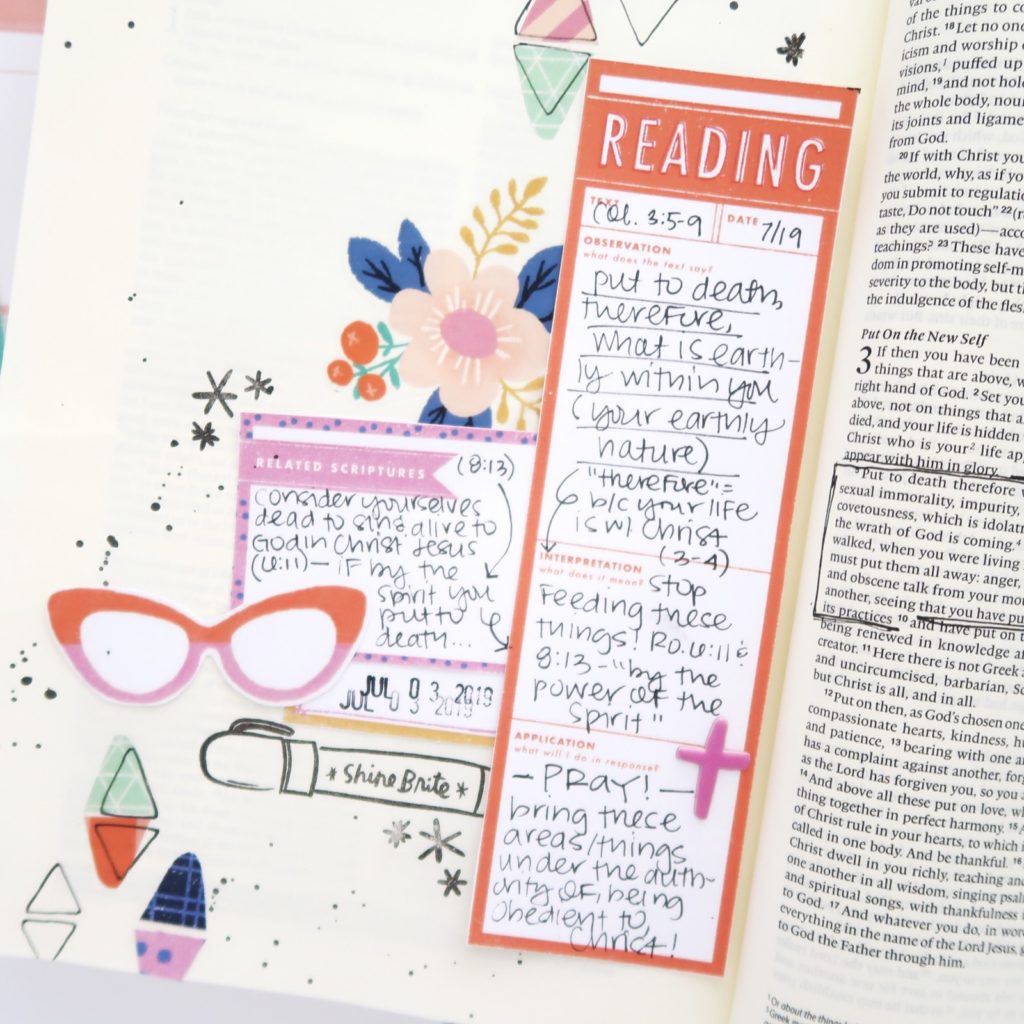 READING
TEXT
Col. 3:5-9
DATE
7/19
OBSERVATION
what does the text say?
put to death,
therefore,
what is earth-
ly within you
(your earthly
nature)
"therefore" =
b/c your life
is w/ Christ
(3-4)
INTERPRETATION
what does it mean?
stop
feeding these
things! Ro. 6:11 &
8:13 - "by the
power of the
Spirit"
APPLICATION
what will I do in response?
- PRAY! -
bring these
areas/things
under the auth-
ority of, being
obedient to,
Christ!
RELATED SCRIPTURES
(8:13)
consider yourselves
dead to sin & alive to
God in Christ Jesus
(6:11) - if by the
spirit you
put to
death...
JUL 03 2019
JUL 03 2019
*Shine Brite*
of the things to
Christ. 18 Let no one
icism and worship
visions,1 puffed up
mind, 19 and not
the whole body,
its joints and
from God.
20 If with Christ you
the world, why, as if
you submit to
taste, Do not touch" 22
as they are used)—
teachings? 23 These have
dom in promoting
severity to the body, but
the indulgence of the
Put On the New Self
3 If then you have been
things that are above,
right hand of God. 2 Set
above, not on things that
died, and your life is hidden
Christ who is your2 life
appear with him in glory.
5 Put to death therefore
sexual immorality, impurity,
covetousness, which is
the wrath of God is coming.4
walked, when you were living
must put them all away: anger,
and obscene talk from your
another, seeing that you have
its practices 10 and have put on
being renewed in knowledge
creator. 11 Here there is not Greek
and uncircumcised, barbarian,
but Christ is all, and in all.
12 Put on then, as God's chosen
compassionate hearts, kindness,
and patience, 13 bearing with one
has a complaint against another,
as the Lord has forgiven you, so you
14 And above all these put on love,
thing together in perfect harmony. 15
of Christ rule in your hearts, to which
called in one body. And be thankful. 16
Christ dwell in you richly, teaching and
one another in all wisdom, singing
and spiritual songs, with thankfulness
to God. 17 And whatever you do, in
everything in the name of the Lord Jesus,
to God the Father through him.
1 Or about the things